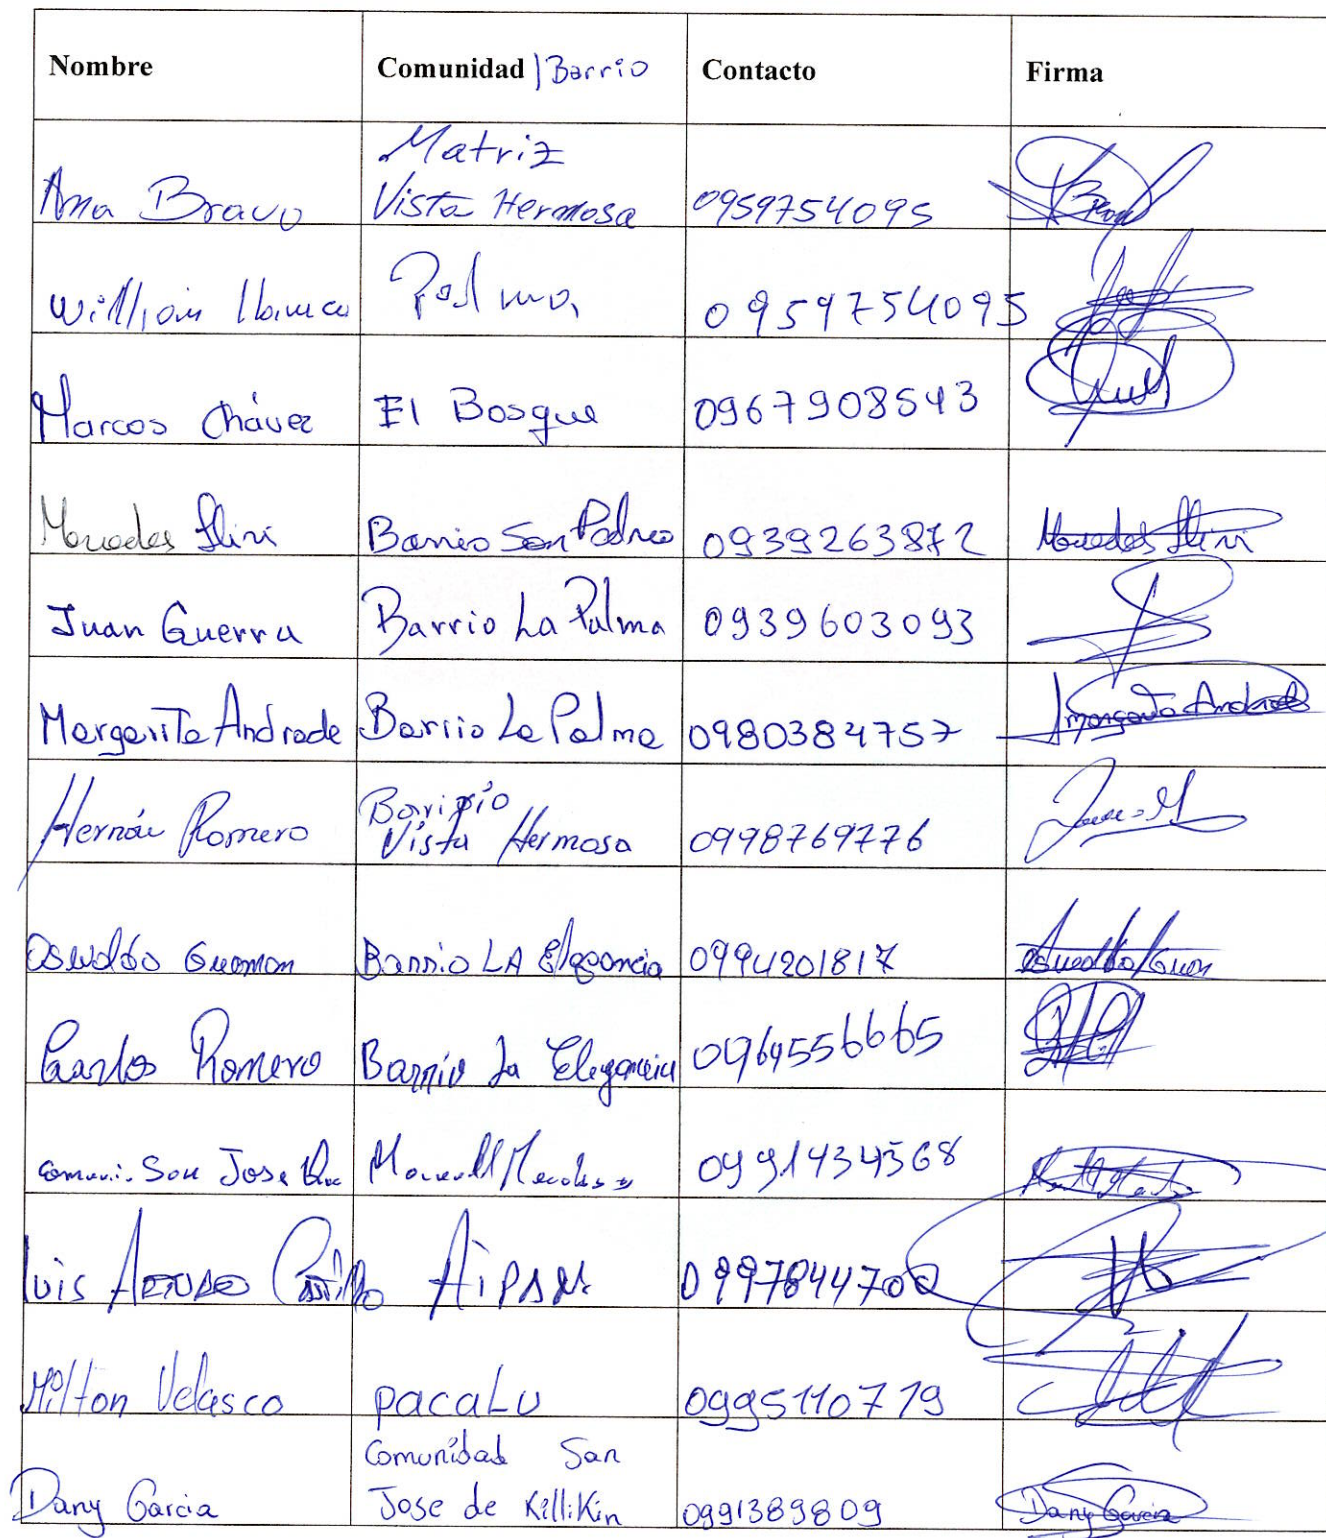 Nombre Comunidad | Barrio Contacto Firma
Matriz
Ana Bravo Vista Hermosa 0959754095
Willian Palma 0959754095
Marcos Chávez El Bosque 0967908543
Mercedes Barrio San Pedro 0939263872 Mercedes
Juan Guerra Barrio La Palma 0939603093
Margarita Andrade Barrio La Palma 0980384757 Margarita Andrade
Barrio
Hernán Romero Vista Hermosa 0998769776
Oswaldo Guaman Barrio LA Elegancia 0994201817
Carlos Romero Barrio La Elegancia 0964556665
San Jose 0991434568
Luis Arturo Castillo 0997844702
Milton Velasco pacaLu 0995110719
Comunidad San
Dany Garcia Jose de Killikin 0991389809 Dany Garcia